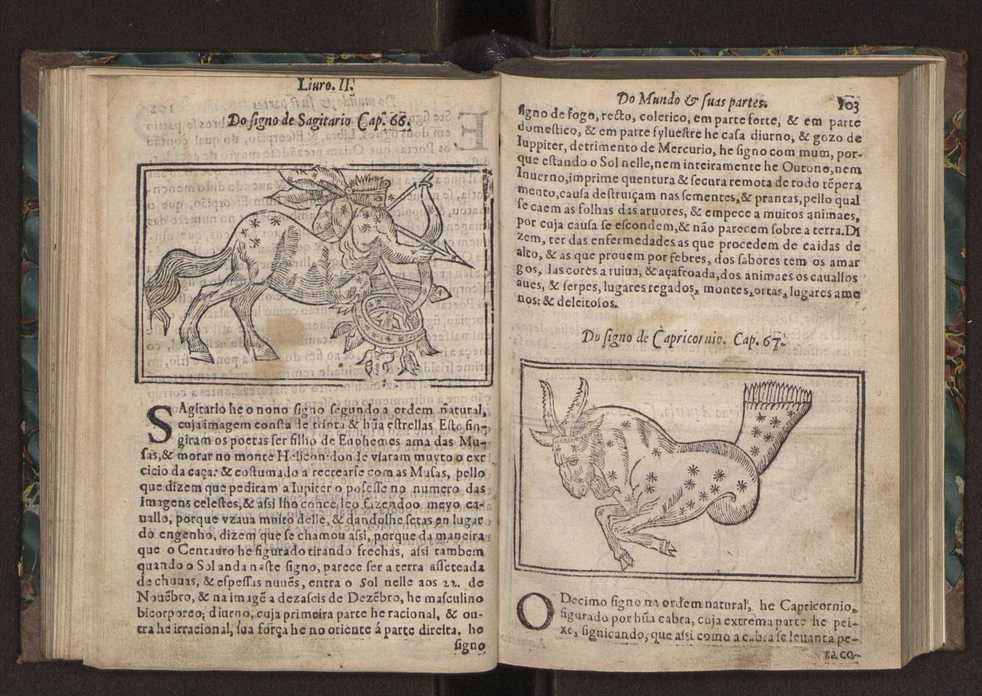 Liuro. II.
Do signo de Sagitario Cap. 66.
SAgitario he o nono signo segundo a ordem natural,
cuja imagem consta de trinta & hũa estrellas. Este fin-
giram os poetas ser filho de Euphemes ama das Mu-
sas, & morar no monte Helicon donde vsaram muyto o exer
cicio da caça: & costumado a recrearse com as Musas, pello
que dizem que pediram a Iupiter o posesse no numero das
Imagens celestes, & assi lho concedeo fazendoo meyo ca-
uallo, porque vzaua muito delle, & dandolhe setas en lugar
do engenho, dizem que se chamou assi, porque da maneira
que o Centauro he figurado tirando frechas, assi tambem
quando o Sol anda naste signo, parece ser a terra asseteada
de chuuas, & espessas nuuẽs, entra o Sol nelle aos 22. de
Nouẽbro, & na imagẽ a dezaseis de Dezẽbro, he masculino
bicorporeo; diurno, cuja primeira parte he racional, & ou-
tra he irracional, sua força he no oriente á parte direita, he
signo
Do Mundo & suas partes. 103
signo de fogo, recto, colerico, em parte forte, & em parte
domestico, & em parte syluestre he casa diurno, & gozo de
Iuppiter, detrimento de Mercurio, he signo com mum, por-
que estando o Sol nelle, nem inteiramente he Outono, nem
Inuerno, imprime quentura & secura remota de todo tẽpera
mento, causa destruiçam nas sementes, & prantas, pello qual
se caem as folhas das aruores, & empece a muitos animaes,
por cuja causa se escondem, & não parecem sobre a terra. Di
zem, ter das enfermedades as que procedem de caidas de
alto, & as que prouem por febres, dos sabores tem os amar
gos, das cores a ruiua, & açafroada, dos animaes os cauallos
aues, & serpes, lugares regados, montes, ortas, lugares ame
nos: & deleitosos.
Do signo de Capricornio. Cap. 67.
O Decimo signo na ordem natural, he Capricornio,
figurado por hũa cabra, cuja extrema parte he pei-
xe, signicando, que assi como a cabra se leuanta pe-